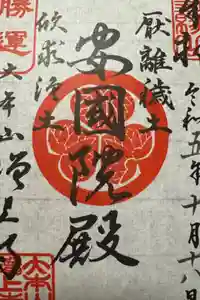 令和五年十月十八日
厭離穢土
安國院殿
欣求浄土
勝運
大本山増上寺
大本山